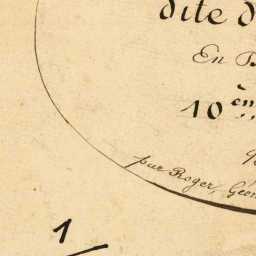 dite d
En
10 en
par Roger, Géom
1